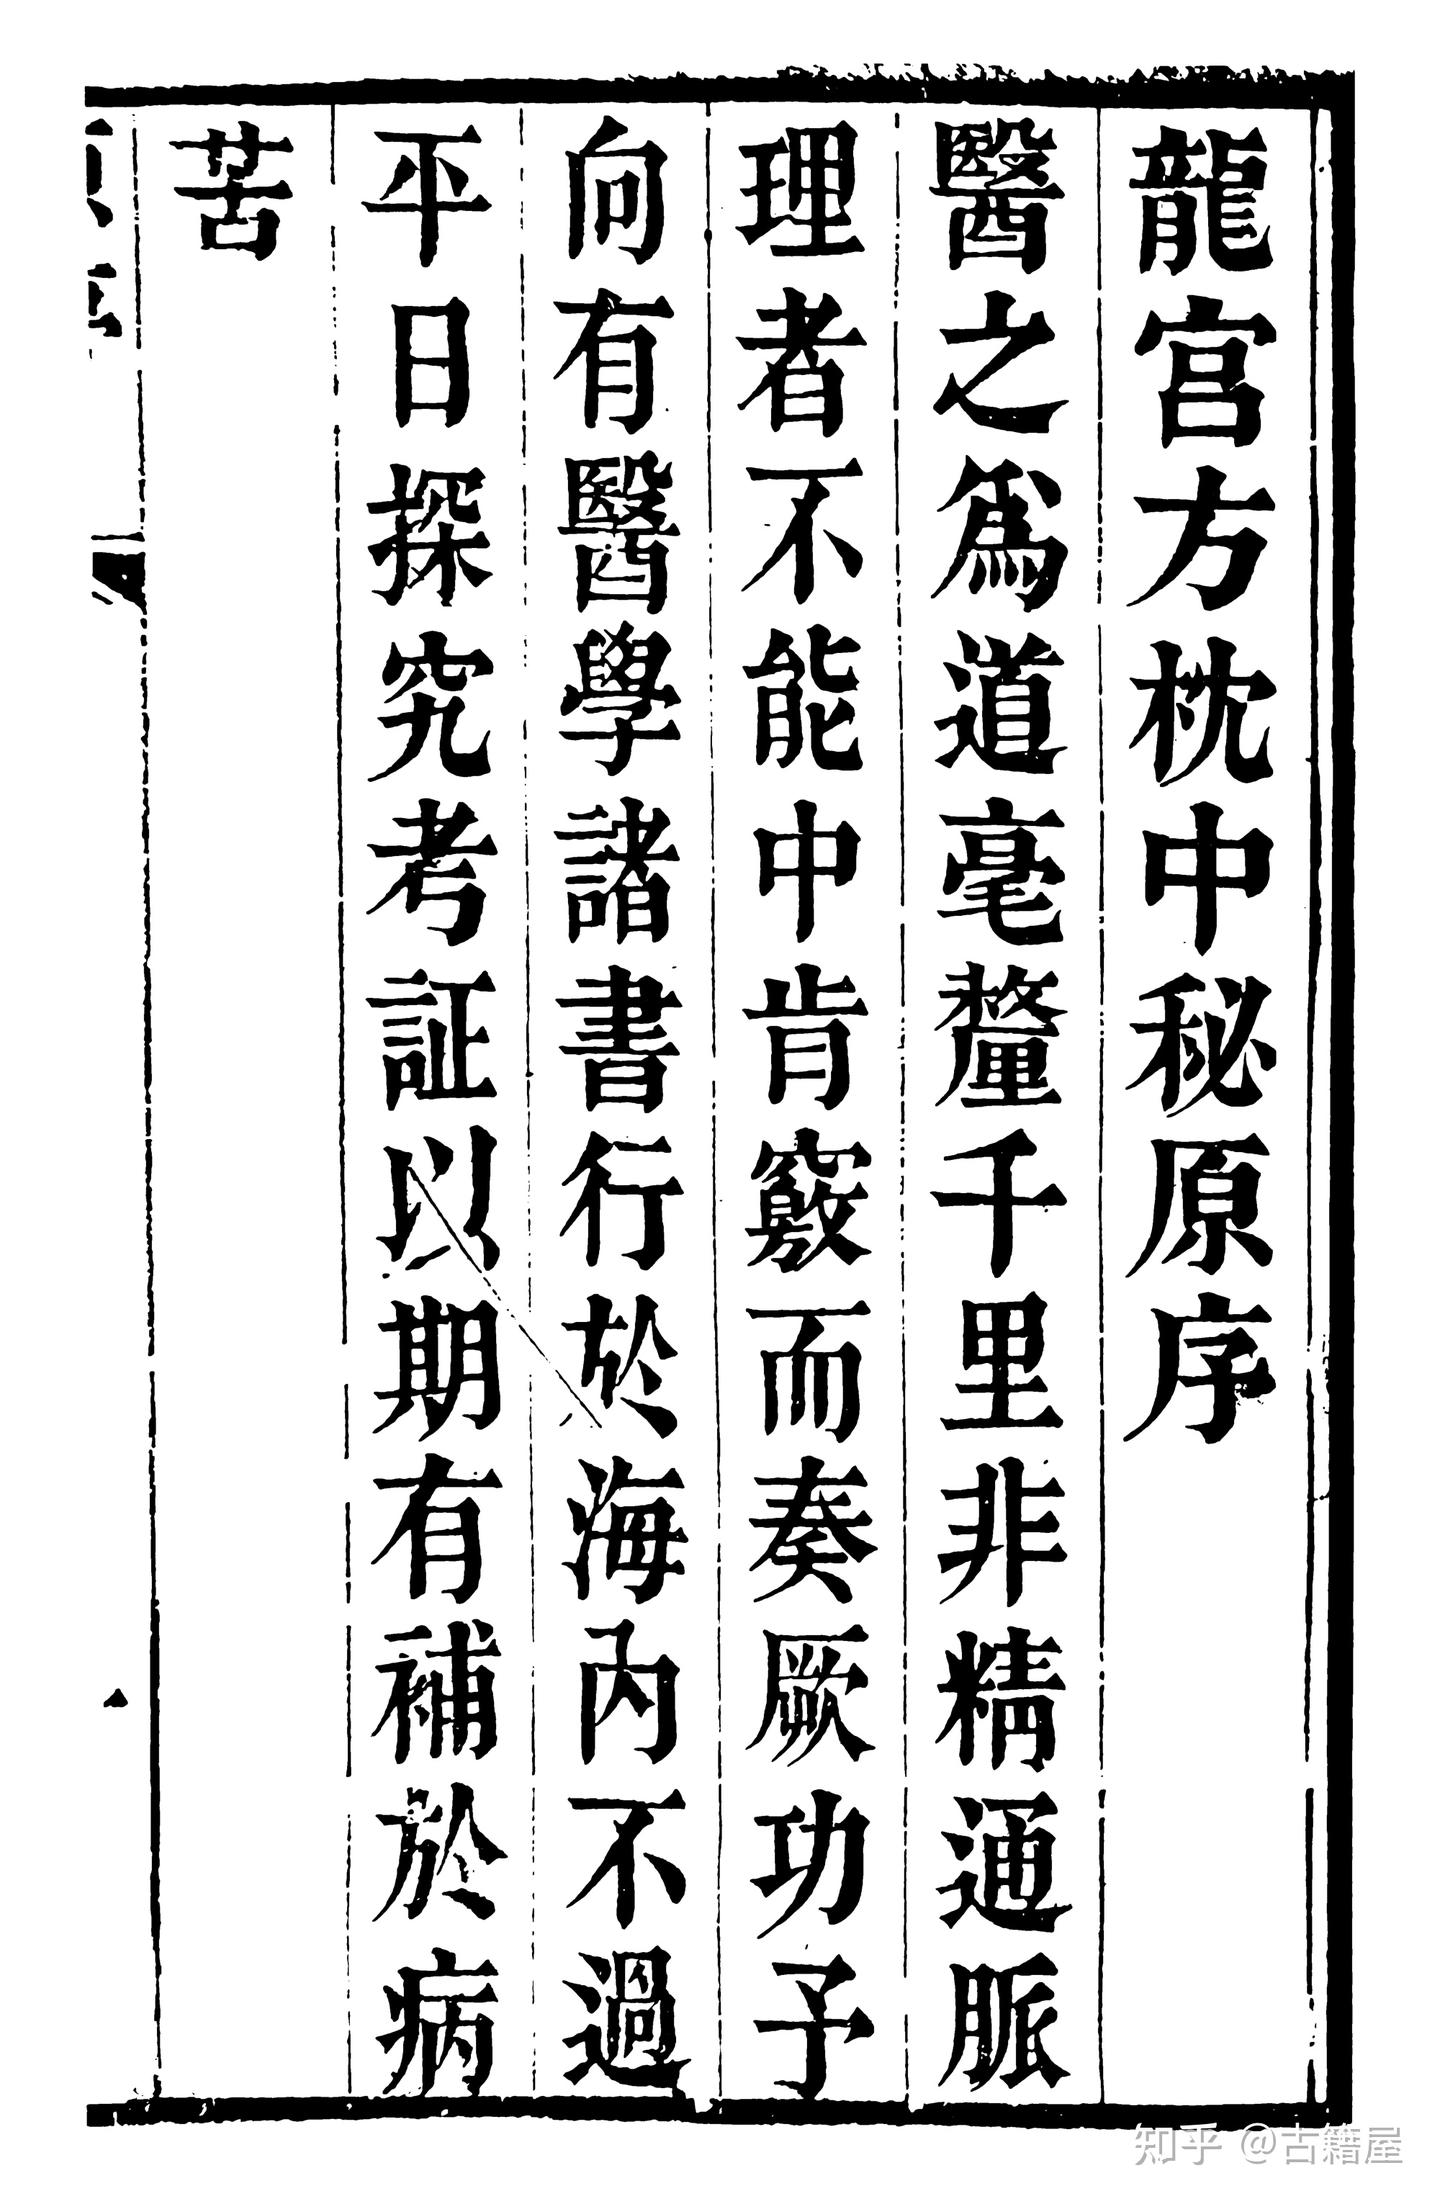 龍宮方枕中秘原序
醫之爲道毫釐千里非精通脈
理者不能中肯竅而奏厥功予
向有醫學諸書行於海內不過
平日探究考証以期有補於病
苦
知乎 @古籍屋